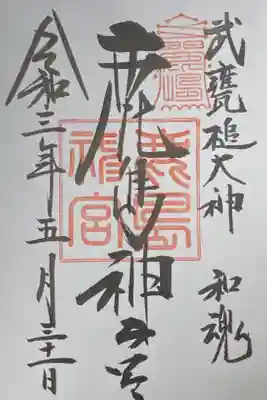 武甕槌大神 和魂
鹿島神宮
鹿島
神宮
令和三年五月三十一日